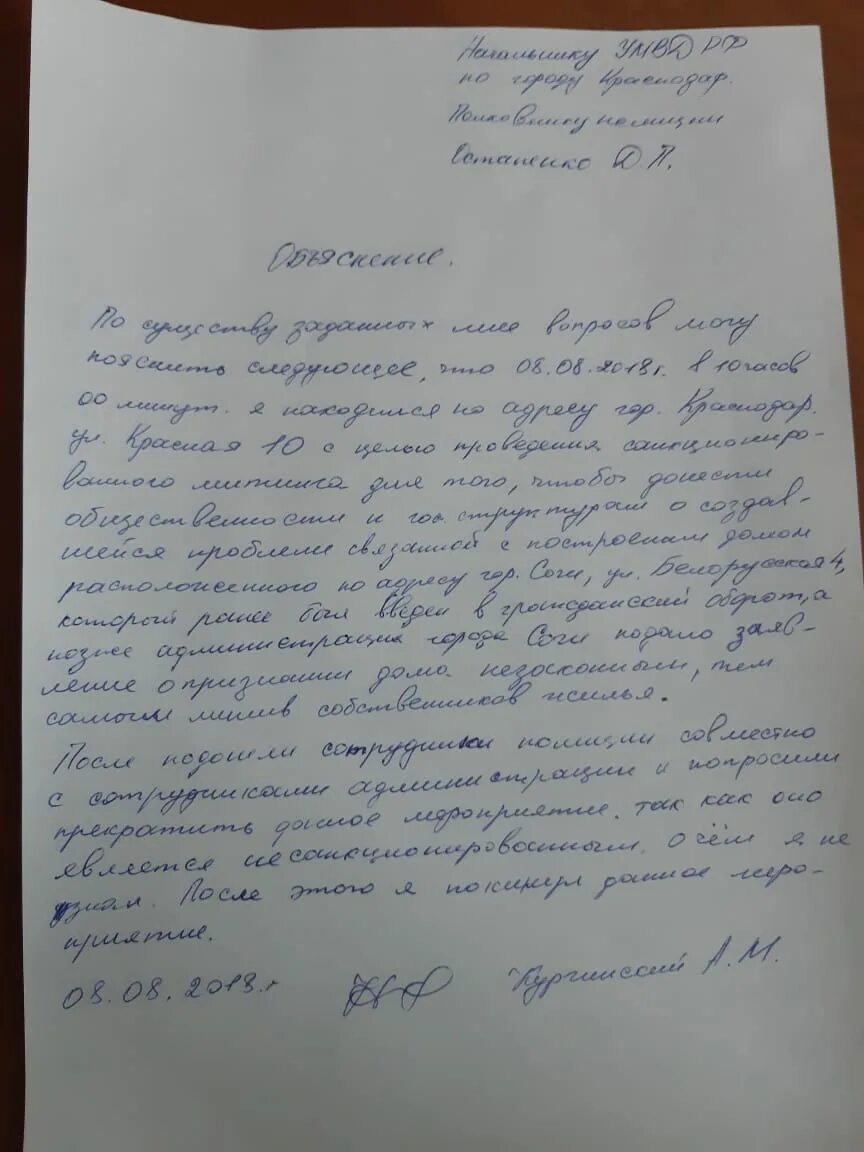 Начальнику УМВД РФ
по городу Краснодар.
Полковнику полиции
Остапенко Д.П.
Объяснение.
По существу заданных мне вопросов могу
пояснить следующее, что 08.08.2018г. в 10 часов
00 минут. я находился по адресу гор. Краснодар.
ул. Красная 10 с целью проведения санкциониро-
ванного митинга для того, чтобы донести
общественности и гос. структурам о создав-
шейся проблеме связанной с построеным домом
расположенного по адресу гор. Сочи, ул. Белорусская 4,
который ранее был введен в гражданский оборот, а
позже администрация города Сочи подало заяв-
ление о признании дома незаконным, тем
самым лишив собственников жилья.
После подошли сотрудники полиции совместно
с сотрудниками администрации и попросили
прекратить данное мероприятие. так как оно
является несанкционированным. О чём я не
знал. После этого я покинул данное меро-
приятие.
08.08.2018.г Кургинский А.М.